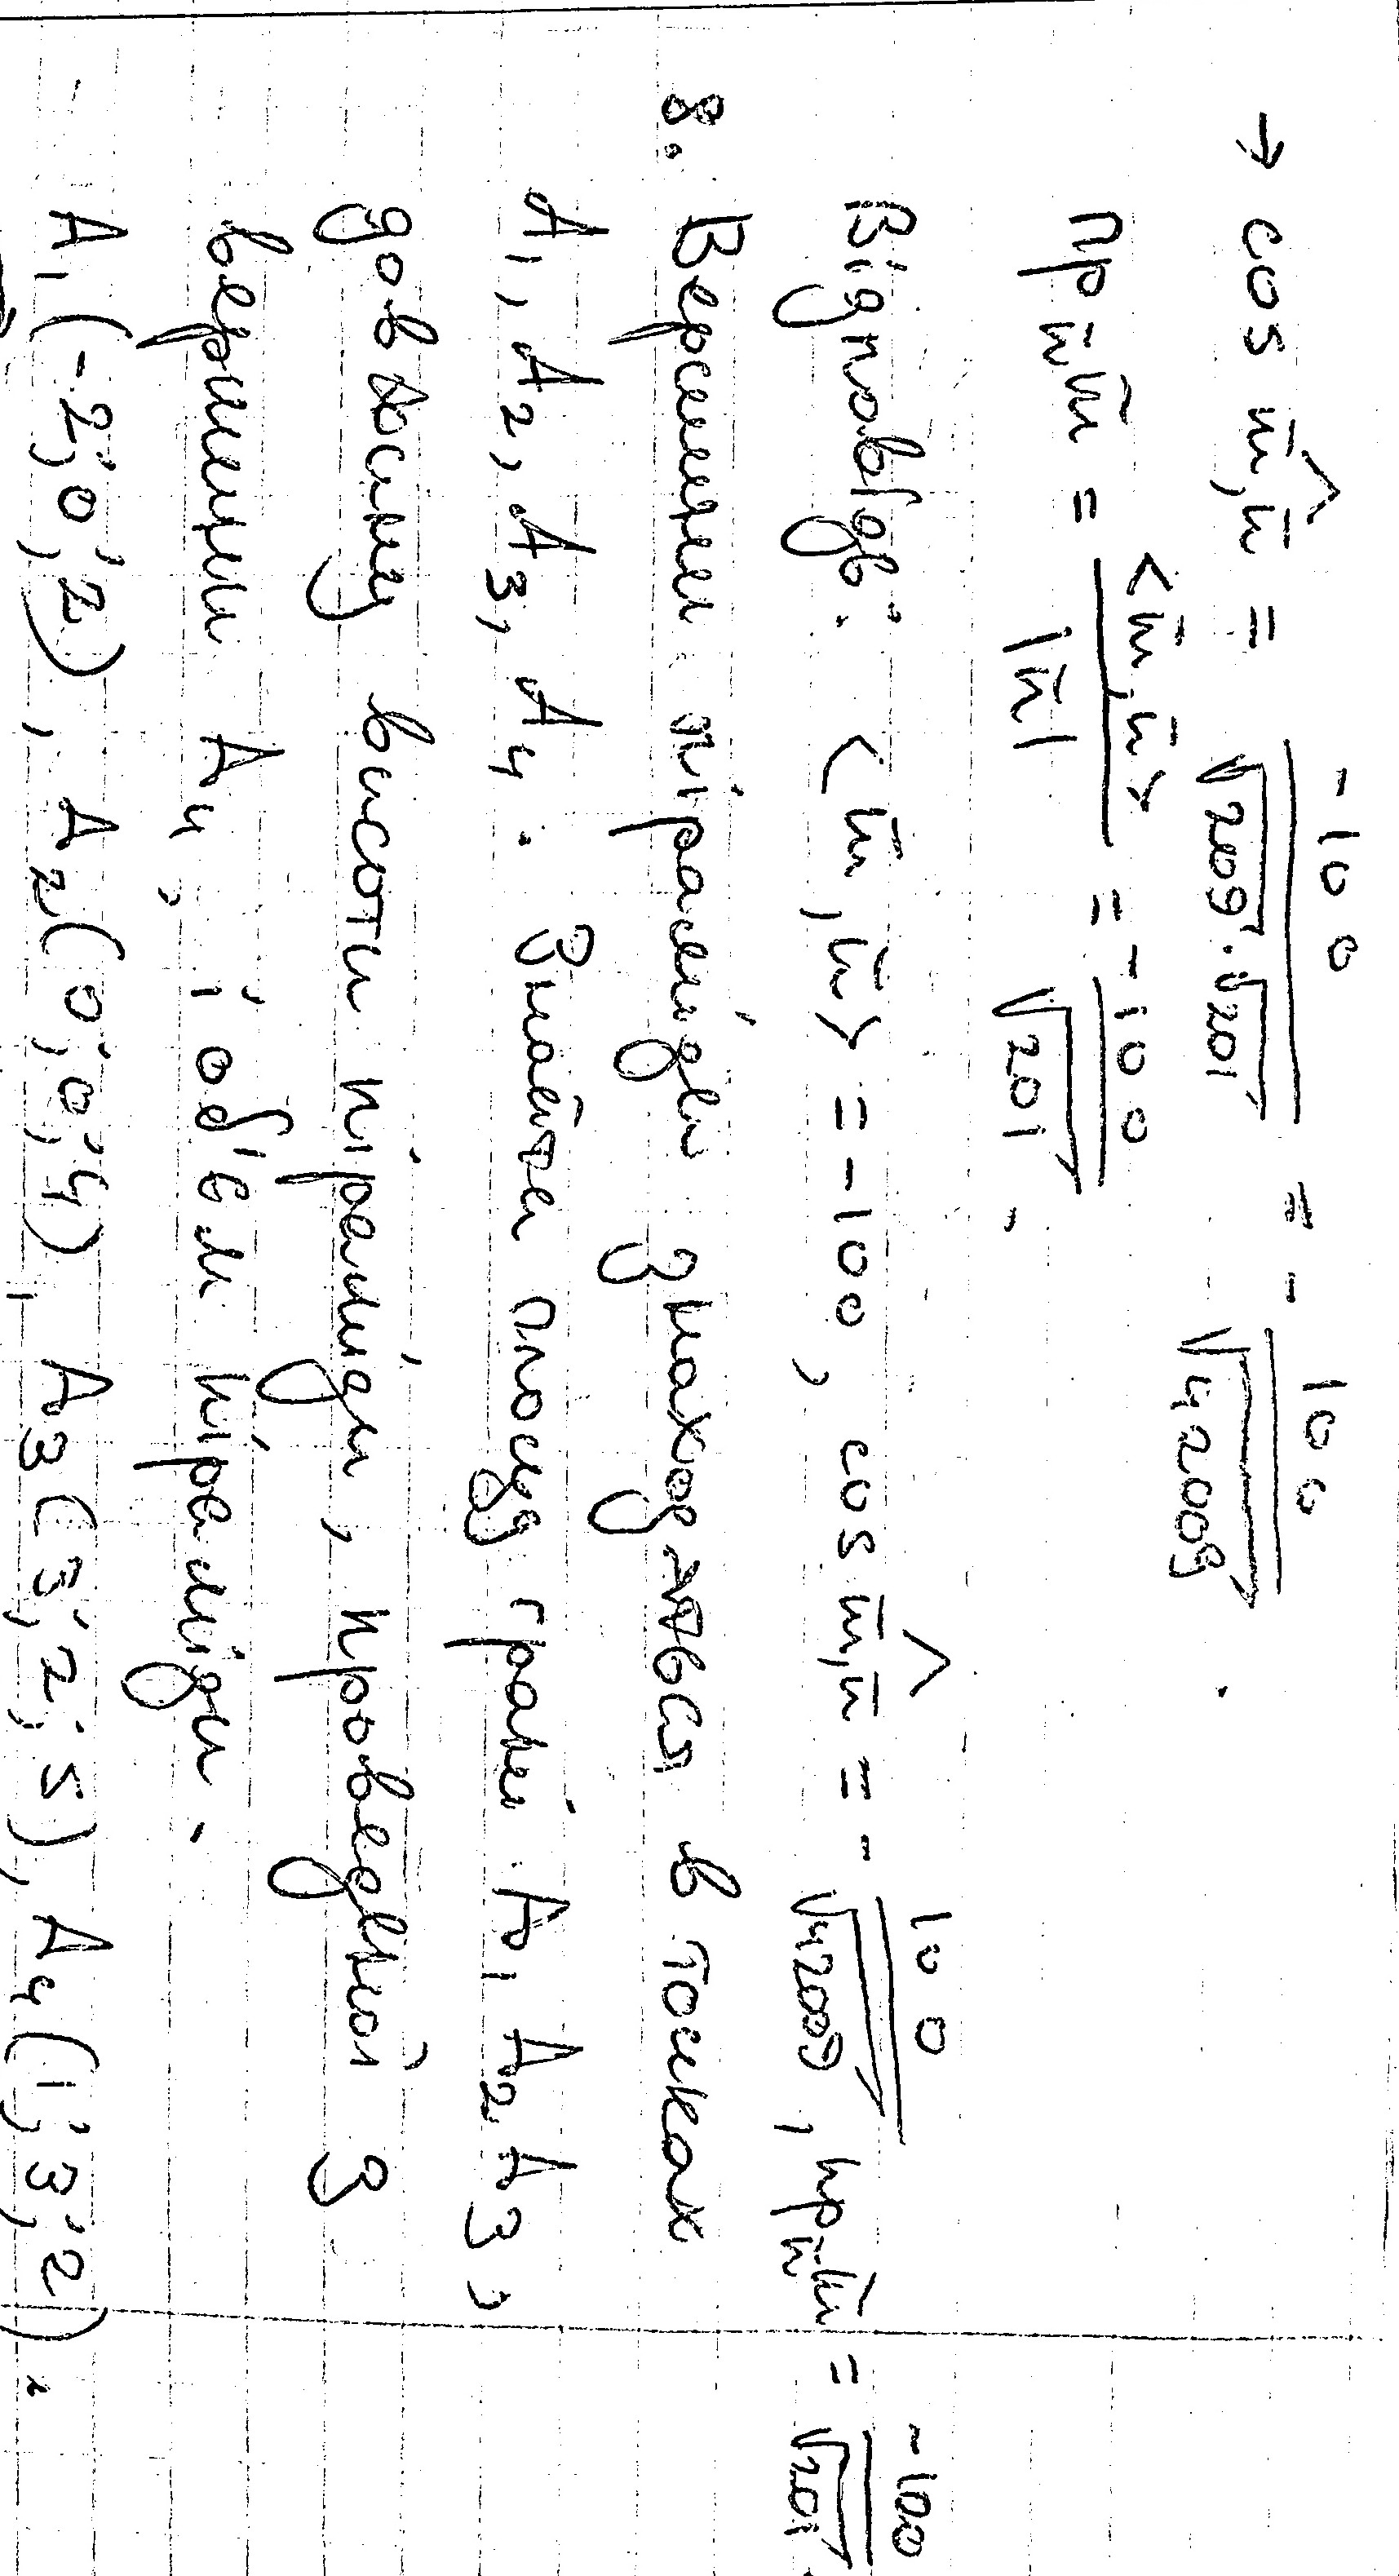 → cos m̄,^n̄ = -100/(√209·√201) = -100/√42009.
пр n̄ m̄ = <m̄,n̄>/|n̄| = -100/√201,
Відповідь: <m̄,n̄> = -100, cos m̄,^n̄ = -100/√42009, пр n̄ m̄ = -100/√201
8. Вершини піраміди знаходяться в точках
A₁, A₂, A₃, A₄. Знайти площу грані A₁A₂A₃,
довжину висоти піраміди, проведеної з
вершини A₄, і об'єм піраміди.
A₁(-2;0;2), A₂(0;0;4), A₃(3;2;5), A₄(1;3;2).